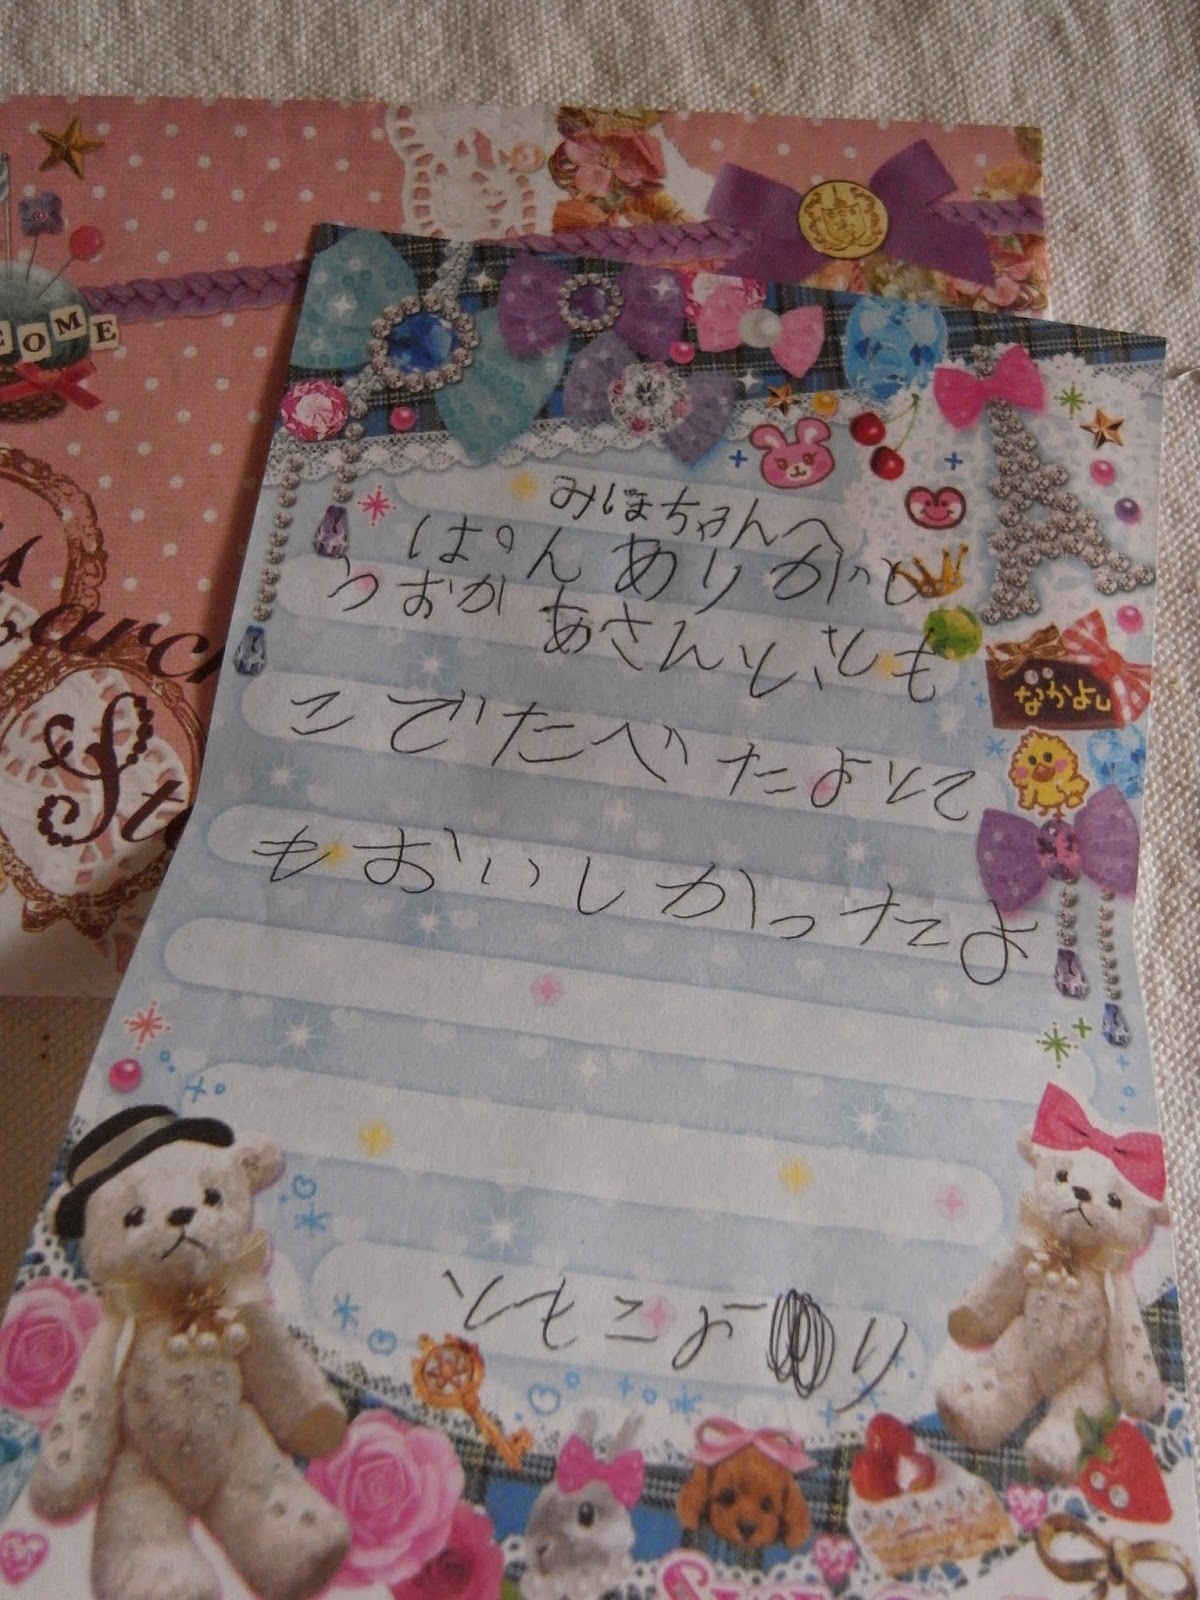 COME
みほちゃんへ
ぱんありがと
うおかあさんといとも
こでたべたよとて
もおいしかったよ
なかよし
ともこより